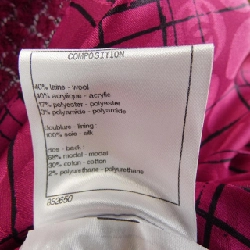 COMPOSITION
40% laine - wool
40% acrylique - acrylic
17% polyester - polyester
3% polyamide - polyamide
doublure - lining :
100% soie - silk
dos - back :
68% modal - modal
30% coton - cotton
2% polyurethane - polyurethane